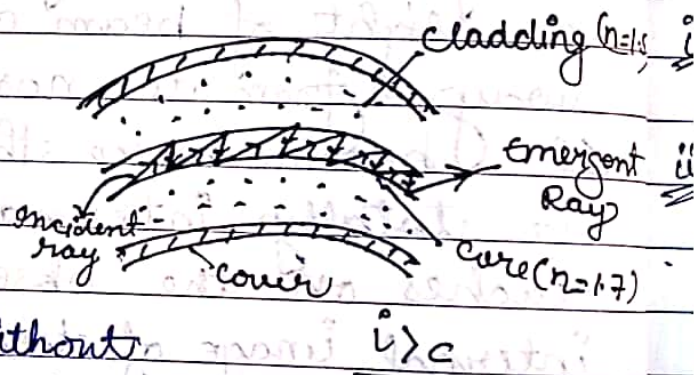 cladding (n=1.5) i
Emergent ii
Ray
Incident
ray
core (n=1.7)
cover
ithout i>c